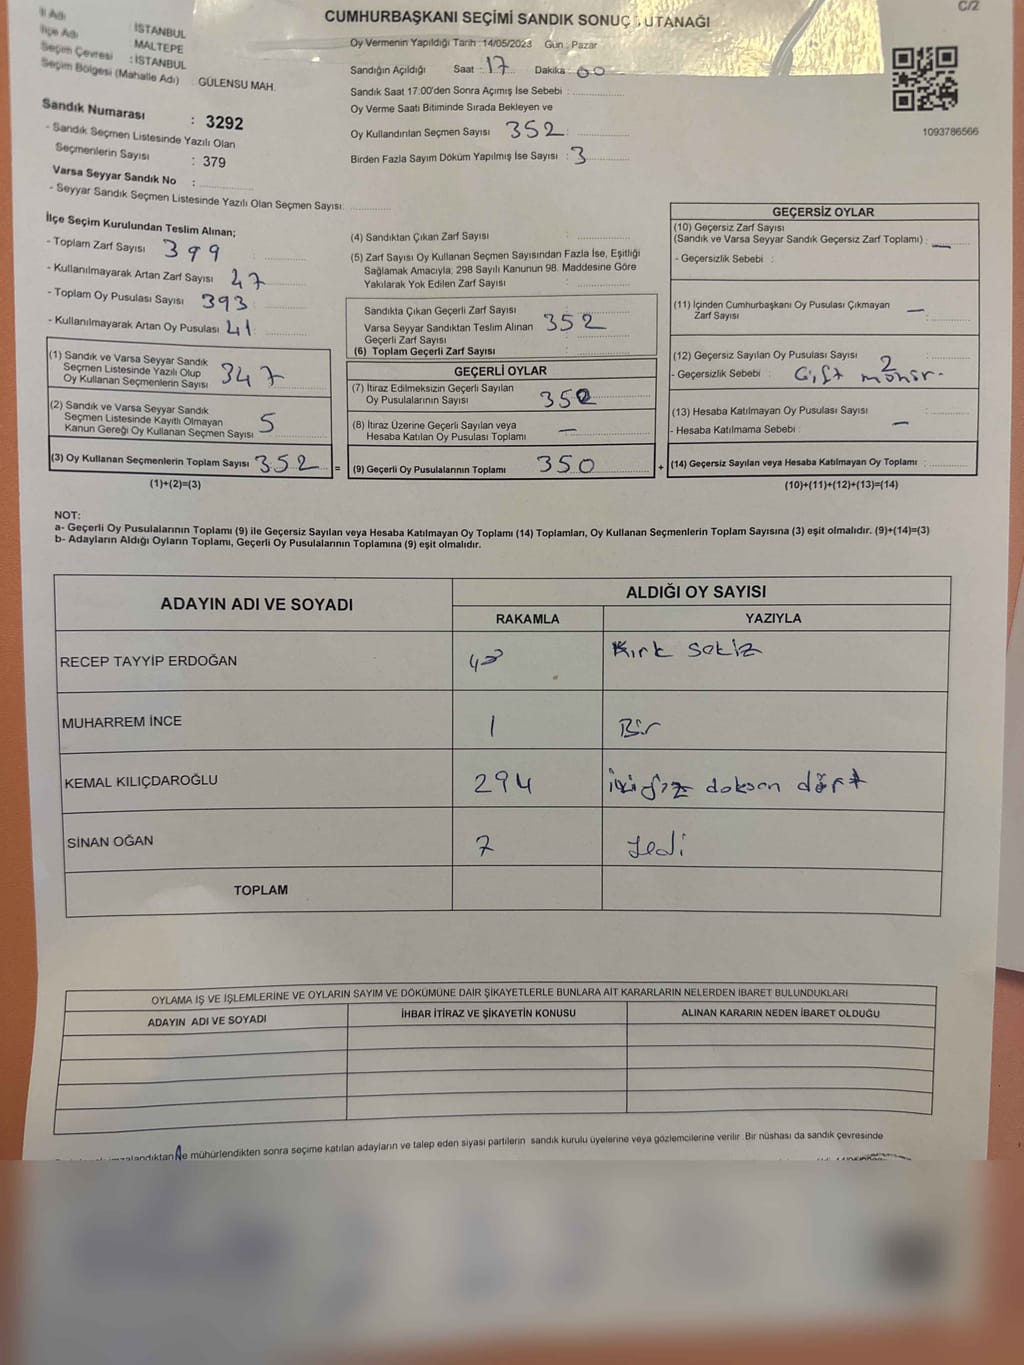 C/2
CUMHURBAŞKANI SEÇİMİ SANDIK SONUÇ TUTANAĞI
İl Adı : İSTANBUL
İlçe Adı : MALTEPE
Seçim Çevresi : İSTANBUL
Seçim Bölgesi (Mahalle Adı) : GÜLENSU MAH.
Sandık Numarası : 3292
- Sandık Seçmen Listesinde Yazılı Olan
Seçmenlerin Sayısı : 379
Varsa Seyyar Sandık No :
- Seyyar Sandık Seçmen Listesinde Yazılı Olan Seçmen Sayısı:
Oy Vermenin Yapıldığı Tarih : 14/05/2023 Gün : Pazar
Sandığın Açıldığı Saat : 17 Dakika : 00
Sandık Saat 17:00'den Sonra Açımış İse Sebebi :
Oy Verme Saati Bitiminde Sırada Bekleyen ve
Oy Kullandırılan Seçmen Sayısı 352 :
Birden Fazla Sayım Döküm Yapılmış İse Sayısı : 3
1093786566
İlçe Seçim Kurulundan Teslim Alınan;
- Toplam Zarf Sayısı 399
- Kullanılmayarak Artan Zarf Sayısı 47
- Toplam Oy Pusulası Sayısı 393
- Kullanılmayarak Artan Oy Pusulası 41
(1) Sandık ve Varsa Seyyar Sandık
Seçmen Listesinde Yazılı Olup
Oy Kullanan Seçmenlerin Sayısı 347
(2) Sandık ve Varsa Seyyar Sandık
Seçmen Listesinde Kayıtlı Olmayan
Kanun Gereği Oy Kullanan Seçmen Sayısı 5
(3) Oy Kullanan Seçmenlerin Toplam Sayısı 352 =
(1)+(2)=(3)
(4) Sandıktan Çıkan Zarf Sayısı :
(5) Zarf Sayısı Oy Kullanan Seçmen Sayısından Fazla İse, Eşitliği
Sağlamak Amacıyla, 298 Sayılı Kanunun 98. Maddesine Göre
Yakılarak Yok Edilen Zarf Sayısı :
Sandıkta Çıkan Geçerli Zarf Sayısı :
Varsa Seyyar Sandıktan Teslim Alınan 352
Geçerli Zarf Sayısı
(6) Toplam Geçerli Zarf Sayısı :
GEÇERLİ OYLAR
(7) İtiraz Edilmeksizin Geçerli Sayılan
Oy Pusulalarının Sayısı
(8) İtiraz Üzerine Geçerli Sayılan veya
Hesaba Katılan Oy Pusulası Toplamı : —
(9) Geçerli Oy Pusulalarının Toplamı 350 +
GEÇERSİZ OYLAR
(10) Geçersiz Zarf Sayısı
(Sandık ve Varsa Seyyar Sandık Geçersiz Zarf Toplamı) : —
- Geçersizlik Sebebi :
(11) İçinden Cumhurbaşkanı Oy Pusulası Çıkmayan
Zarf Sayısı : —
(12) Geçersiz Sayılan Oy Pusulası Sayısı : 2
- Geçersizlik Sebebi : Çift mühür
(13) Hesaba Katılmayan Oy Pusulası Sayısı :
- Hesaba Katılmama Sebebi : —
(14) Geçersiz Sayılan veya Hesaba Katılmayan Oy Toplamı :
(10)+(11)+(12)+(13)=(14)
NOT:
a- Geçerli Oy Pusulalarının Toplamı (9) ile Geçersiz Sayılan veya Hesaba Katılmayan Oy Toplamı (14) Toplamları, Oy Kullanan Seçmenlerin Toplam Sayısına (3) eşit olmalıdır. (9)+(14)=(3)
b- Adayların Aldığı Oyların Toplamı, Geçerli Oy Pusulalarının Toplamına (9) eşit olmalıdır.
ADAYIN ADI VE SOYADI ALDIĞI OY SAYISI
RAKAMLA YAZIYLA
RECEP TAYYİP ERDOĞAN 48 Kırk sekiz
MUHARREM İNCE 1 Bir
KEMAL KILIÇDAROĞLU 294 ikiyüz doksan dört
SİNAN OĞAN 7 Yedi
TOPLAM
OYLAMA İŞ VE İŞLEMLERİNE VE OYLARIN SAYIM VE DÖKÜMÜNE DAİR ŞİKAYETLERLE BUNLARA AİT KARARLARIN NELERDEN İBARET BULUNDUKLARI
ADAYIN ADI VE SOYADI İHBAR İTİRAZ VE ŞİKAYETİN KONUSU ALINAN KARARIN NEDEN İBARET OLDUĞU
mühürlendikten sonra seçime katılan adayların ve talep eden siyasi partilerin sandık kurulu üyelerine veya gözlemcilerine verilir. Bir nüshası da sandık çevresinde